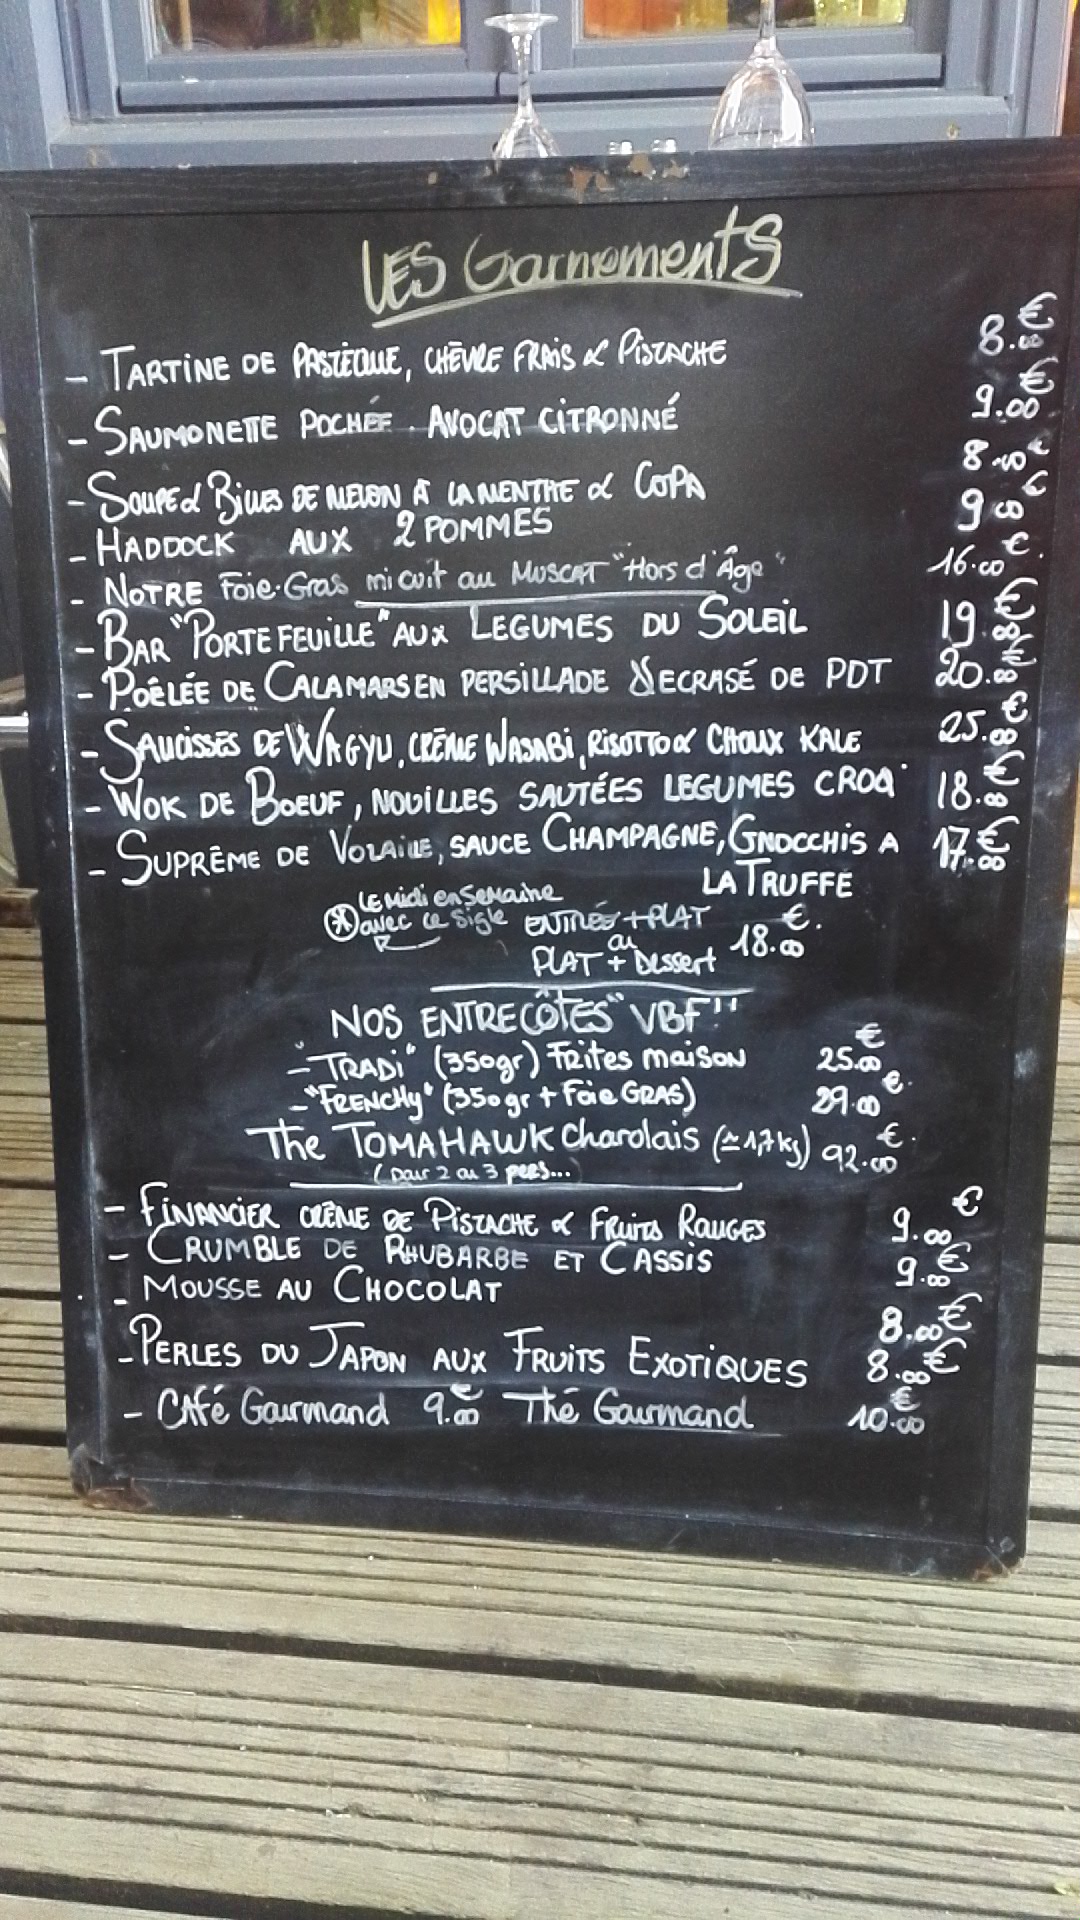 LES Garnements
- TARTINE DE PASTÈQUE, CHÈVRE FRAIS & PISTACHE 8.00€
- SAUMONETTE POCHÉE. AVOCAT CITRONNÉ 9.00€
- SOUPE & BILLES DE MELON À LA MENTHE & COPA 8.00€
- HADDOCK AUX 2 POMMES 9.00€
- NOTRE Foie-Gras mi cuit au MUSCAT "Hors d'Âge" 16.00€.
- BAR "PORTEFEUILLE" AUX LEGUMES DU SOLEIL 19.00€
- POÊLÉE DE CALAMARS EN PERSILLADE & ECRASÉ DE PDT 20.00€
- SAUCISSES DE WAGYU, CRÈME WASABI, RISOTTO & CHOUX KALE 25.00€
- WOK DE BOEUF, NOUILLES SAUTÉES LEGUMES CROQ' 18.00€
- SUPRÊME DE VOLAILLE, SAUCE CHAMPAGNE, GNOCCHIS A 17.00€
LA TRUFFE
LE Midi en SEMAINE
* avec ce Sigle ENTRÉE + PLAT
ou 18.00€.
PLAT + Dessert
NOS ENTRECÔTES "VBF"
- "TRADI" (350gr) Frites maison 25.00€
- "FRENCHY" (350gr + Foie GRAS) 29.00€.
The TOMAHAWK Charolais (≃1,7kg) 92.00€.
(pour 2 ou 3 pers...)
- FINANCIER CRÈME DE PISTACHE & FRUITS ROUGES 9.00€
- CRUMBLE DE RHUBARBE ET CASSIS 9.00€
- MOUSSE AU CHOCOLAT 8.00€
- PERLES DU JAPON AUX FRUITS EXOTIQUES 8.00€
- CAfé Gourmand 9.00€ Thé Gourmand 10.00€